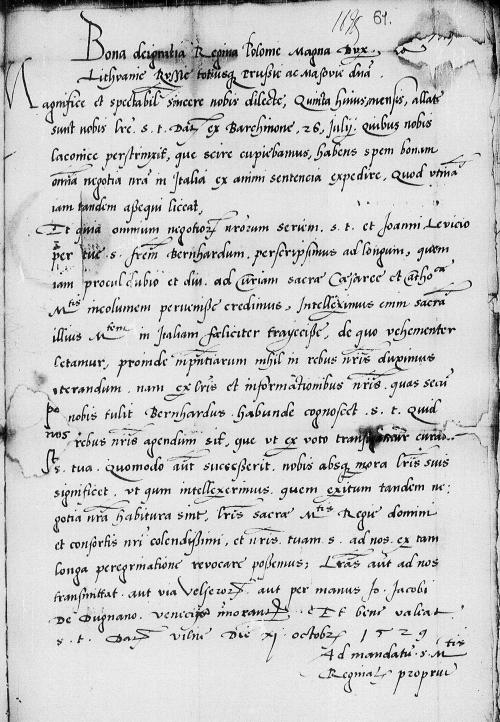 61.
Bona dei gratia Regina Polonie Magna Dux
Lithvanie Russie totiusq Prussie ac Masovie dna.
Magnifice et spectabilis sincere nobis dilecte, Quinta huius mensis, allate
sunt nobis lre. s. t. Dat ex Barchinone, 26, Julij. Quibus nobis
laconice perstrinxit, que scire cupiebamus, habens spem bonam
omnia negotia nra in Italia ex animi sentencia expedire, Quod vtina
iam tandem assequi liceat,
Et quia omnium negotior nrorum seriem. s. t. et Joanni Levicio
per tue. s. frem Bernhardum, perscripsimus ad longum, quem
iam procul dubio et diu. ad curiam sacrae Caesaree et Catho
Mtis incolumem pervenisse credimus, Intelleximus enim sacra
illius Mtem in Italiam foeliciter trayecisse, de quo vehementer
letamur, proinde inpntiarum nihil in rebus nris duximus
iterandum. nam ex lris et informationibus nris. quas secu
nobis tulit Bernhardus. habunde cognoscet. s. t. Quid
rebus nris agendum sit, que vt ex voto
s. tua. Quomodo aut successerit. nobis absq mora lris suis
significet. vt qum intellexermus. quem exitum tandem ne:
potia nra habitura sint, lris sacrae Mtis Regie domini
et consortis nri colendissimi, et nris. tuam. s. ad nos. ex tam
longa peregrinatione revocare possemus; Lras aut ad nos
transmittat. aut via Velseror, aut per manus Jo. Jacobi
De Dugnano. venecijs morant. Et bene valeat
s. t. Dat Vilne Die xj octobr 1529
Ad mandatu. s. Mtis
Reginal propriu